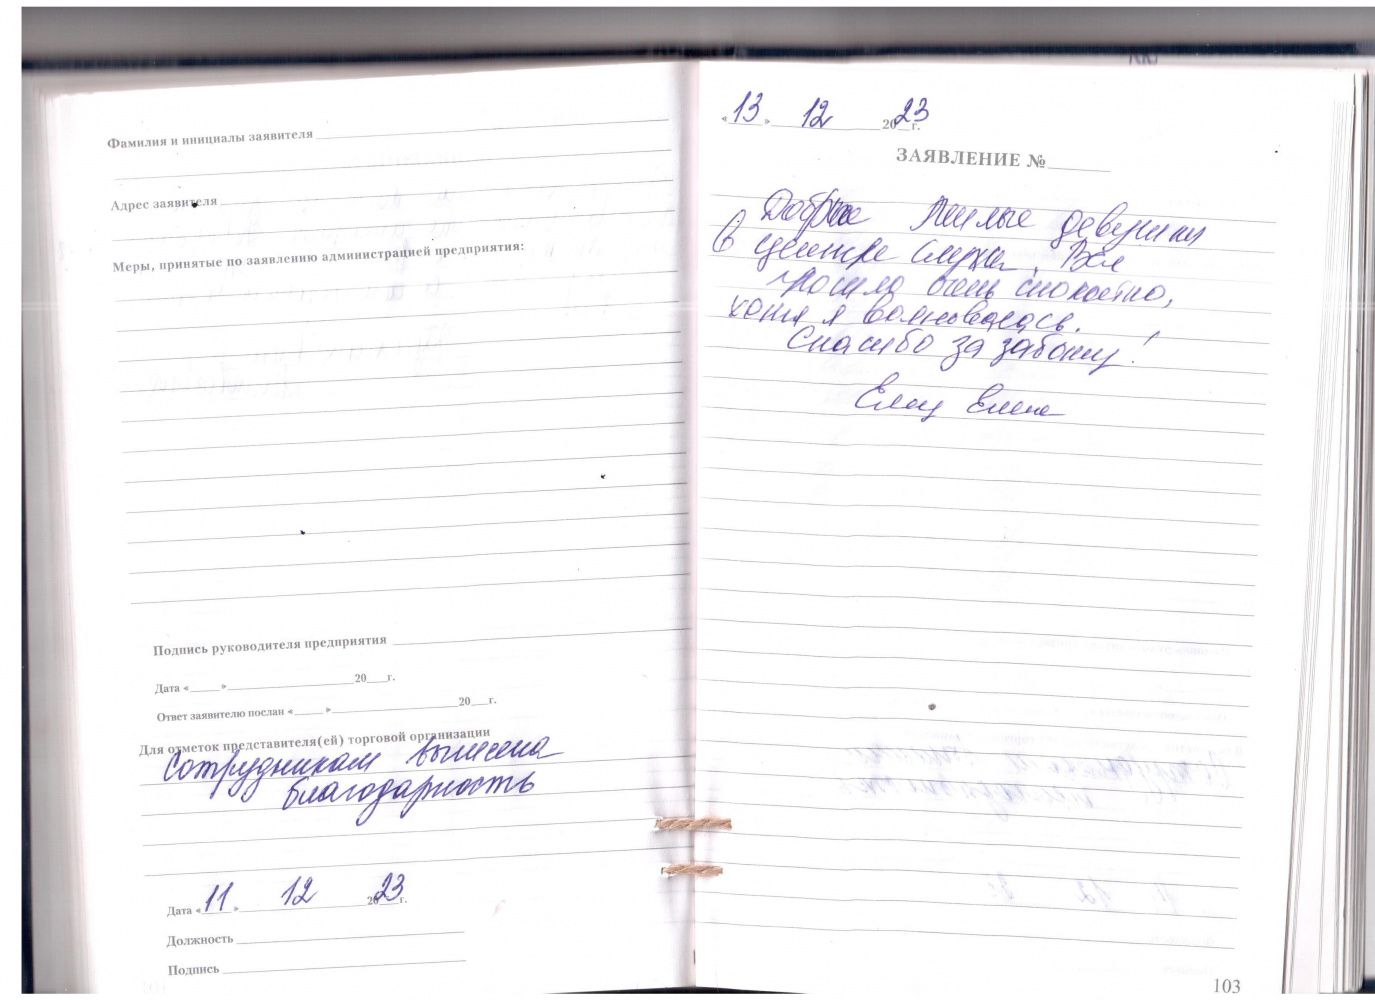 Фамилия и инициалы заявителя
Адрес заявителя
Меры, принятые по заявлению администрацией предприятия:
Подпись руководителя предприятия
Дата «    »    20    г.
Ответ заявителю послан «    »    20    г.
Для отметок представителя(ей) торговой организации
Сотрудникам вынесена
благодарность
Дата «11» 12 2023 г.
Должность
Подпись
«13» 12 2023 г.
ЗАЯВЛЕНИЕ №
Добрые милые девушки
в центре слуха. Все
прошло очень спокойно,
хотя я волновалась.
Спасибо за заботу!
Елена
103